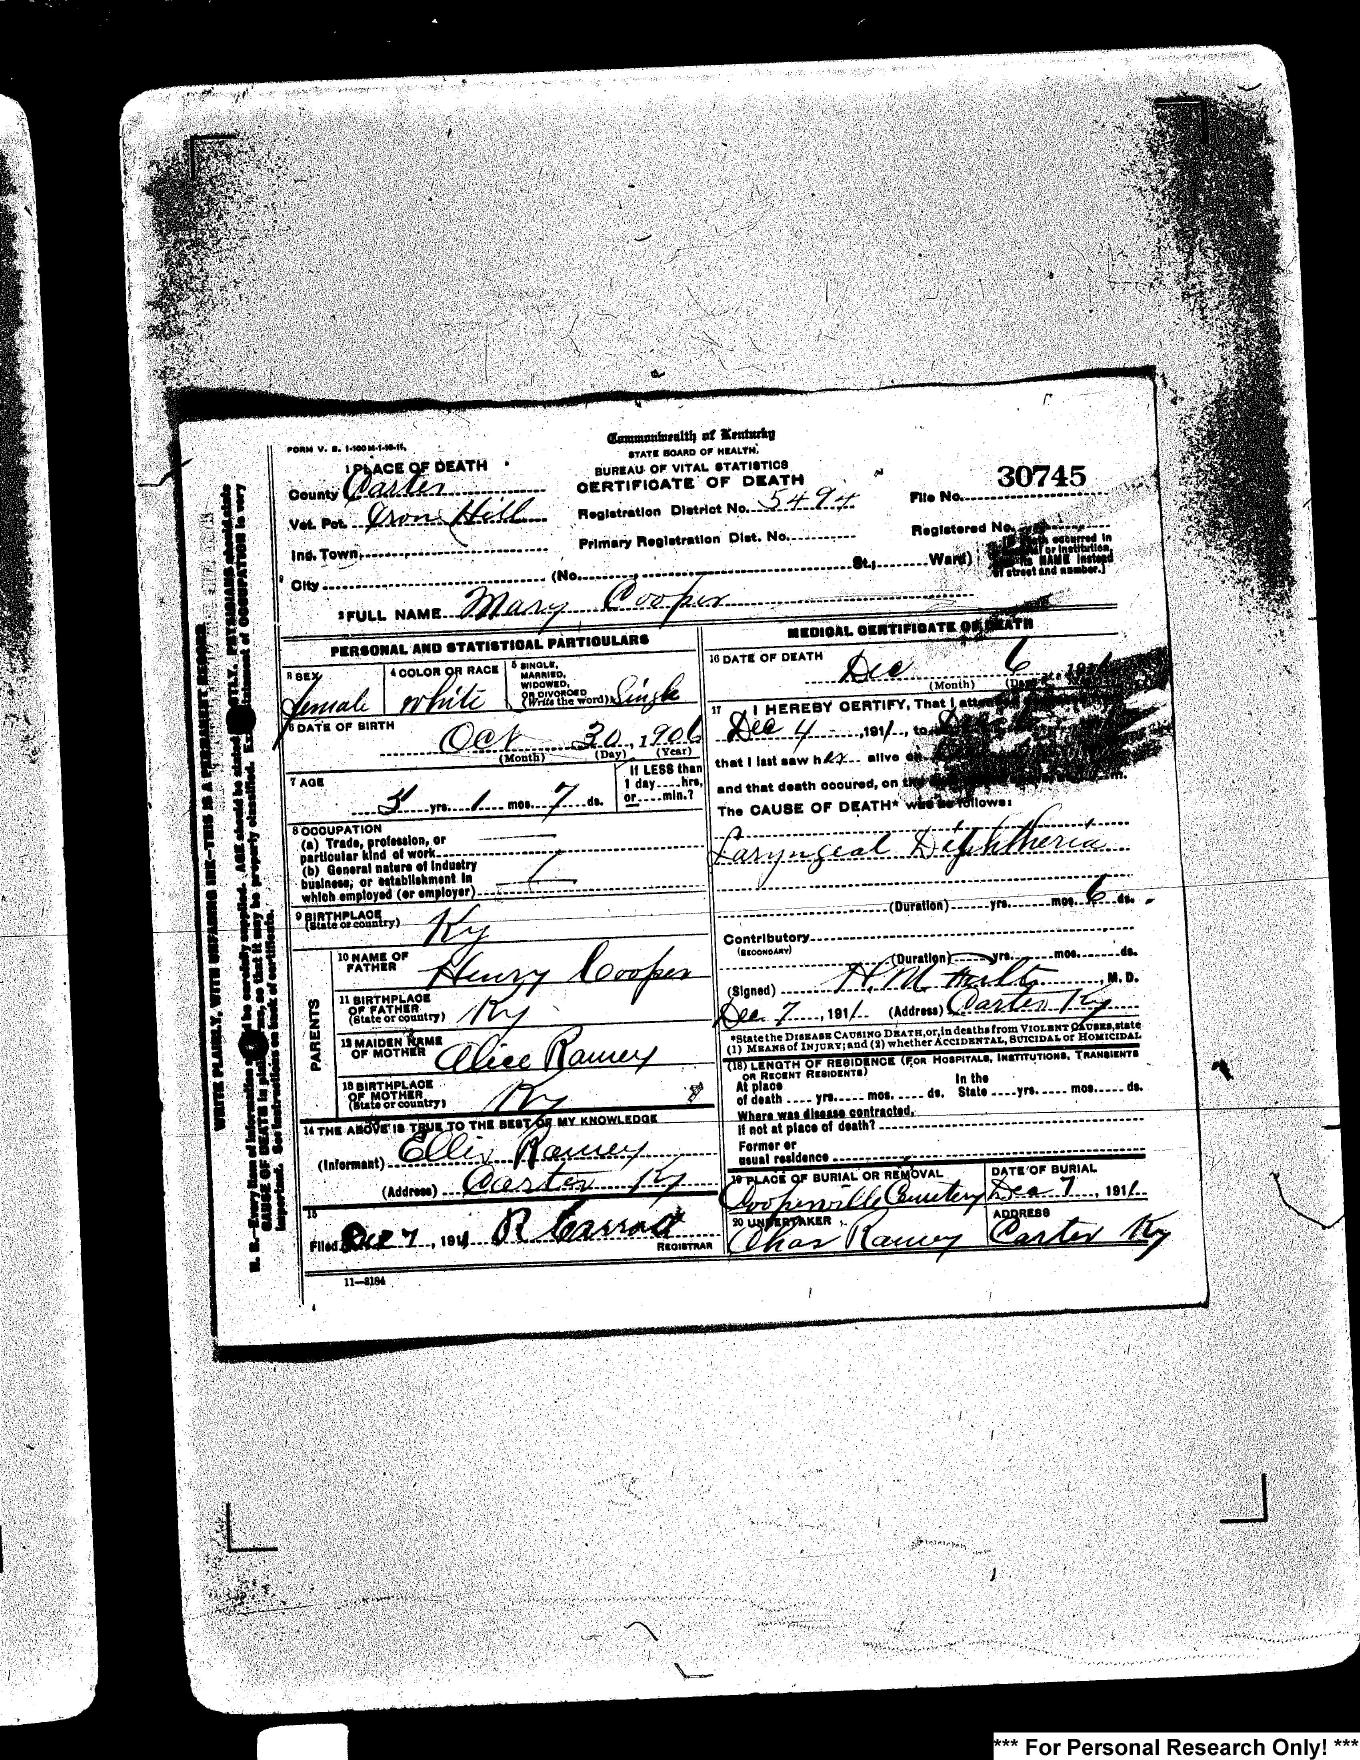 FORM V. S. 1-100M-1-10-11.
Commonwealth of Kentucky
STATE BOARD OF HEALTH.
BUREAU OF VITAL STATISTICS
CERTIFICATE OF DEATH
1 PLACE OF DEATH
County Carter
Vot. Pct. Iron Hill
Inc. Town
City (No. St.; Ward)
Registration District No. 5494
Primary Registration Dist. No.
File No. 30745
Registered No.
occurred in
or institution,
its NAME instead
of street and number.]
2 FULL NAME Mary Cooper
PERSONAL AND STATISTICAL PARTICULARS
3 SEX female
4 COLOR OR RACE white
5 SINGLE, MARRIED, WIDOWED, OR DIVORCED (Write the word) Single
6 DATE OF BIRTH
Oct 30, 1906
(Month) (Day) (Year)
7 AGE
5 yrs. 1 mos. 7 ds.
If LESS than 1 day hrs. or min.?
8 OCCUPATION
(a) Trade, profession, or
particular kind of work
(b) General nature of industry
business, or establishment in
which employed (or employer)
9 BIRTHPLACE
(State or country) Ky
PARENTS
10 NAME OF FATHER Henry Cooper
11 BIRTHPLACE OF FATHER (State or country) Ky
12 MAIDEN NAME OF MOTHER Alice Ramey
13 BIRTHPLACE OF MOTHER (State or country) Ky
14 THE ABOVE IS TRUE TO THE BEST OF MY KNOWLEDGE
(Informant) Ellis Ramey
(Address) Carter Ky
15
Filed Dec 7, 1911 R
REGISTRAR
11—3184
MEDICAL CERTIFICATE OF DEATH
16 DATE OF DEATH
Dec 6 1911
(Month)
17 I HEREBY CERTIFY, That I
Dec 4, 1911, to
that I last saw her alive on
and that death occured, on the m.
The CAUSE OF DEATH* was as follows:
Laryngeal Diphtheria
(Duration) yrs. mos. 6 ds.
Contributory
(SECONDARY)
(Duration) yrs. mos. ds.
(Signed) H. M. , M. D.
Dec 7, 1911. (Address) Carter Ky
*State the DISEASE CAUSING DEATH, or, in deaths from VIOLENT CAUSES, state
(1) MEANS of INJURY; and (2) whether ACCIDENTAL, SUICIDAL or HOMICIDAL
(18) LENGTH OF RESIDENCE (FOR HOSPITALS, INSTITUTIONS, TRANSIENTS
OR RECENT RESIDENTS)
At place of death yrs. mos. ds. In the State yrs. mos. ds.
Where was disease contracted,
if not at place of death?
Former or
usual residence
19 PLACE OF BURIAL OR REMOVAL
Cooperville Cemetery
DATE OF BURIAL
Dec 7, 1911.
20 UNDERTAKER
Chas Ramey
ADDRESS
Carter Ky
WRITE PLAINLY, WITH UNFADING INK—THIS IS A PERMANENT RECORD
N. B.—Every item of information be carefully supplied. AGE should be stated EXACTLY. PHYSICIANS should state
CAUSE OF DEATH in plain terms, so that it may be properly classified. Exact statement of OCCUPATION is very
important. See instructions on back of certificate.
*** For Personal Research Only! ***